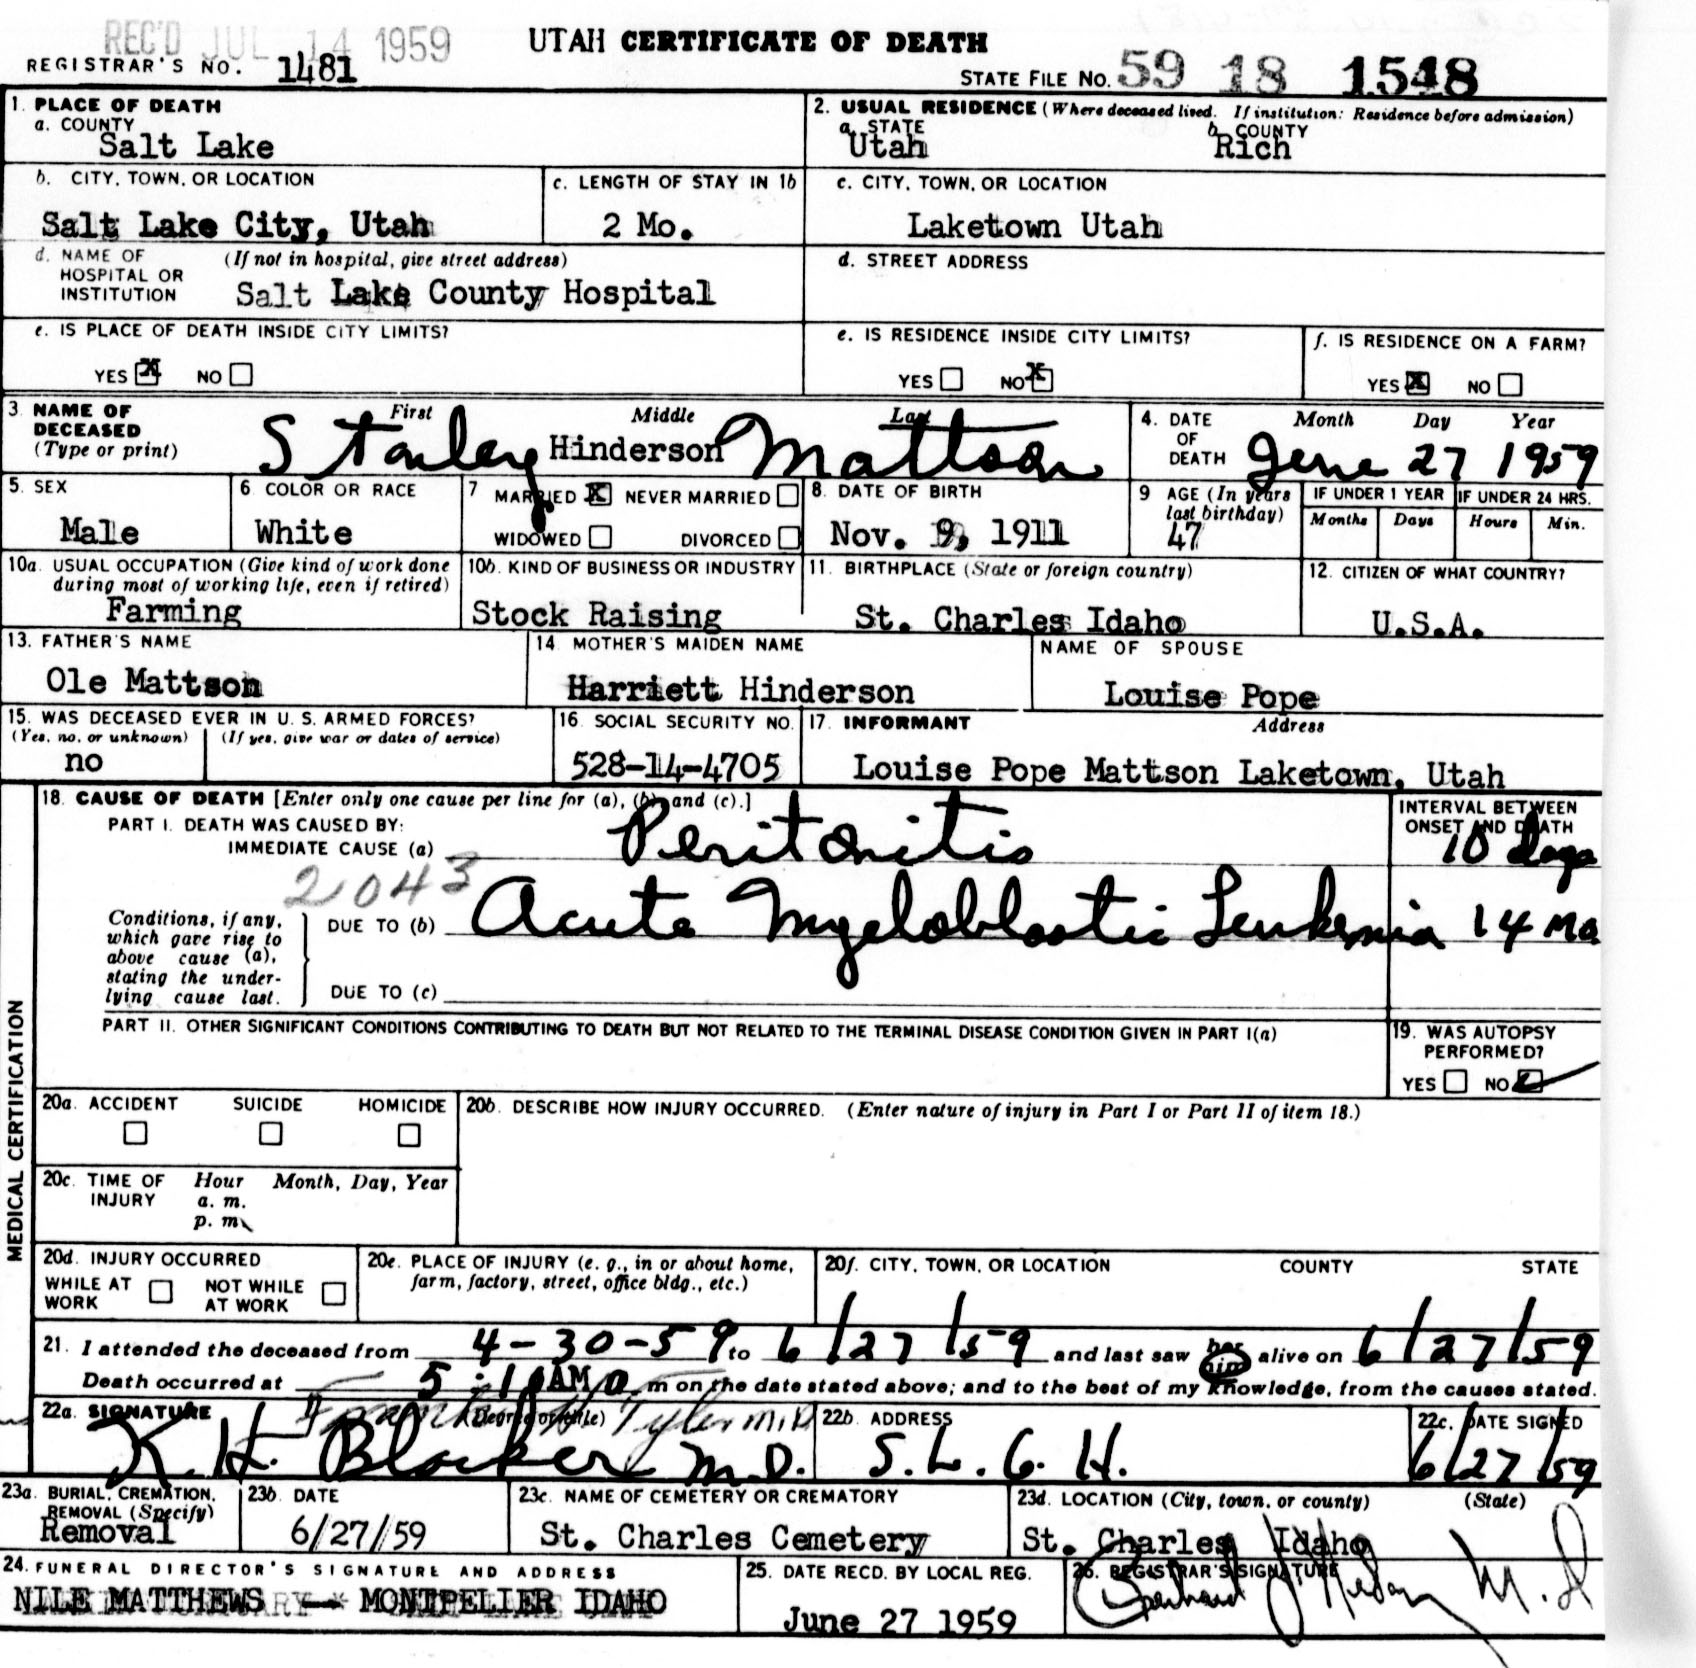 REC'D JUL 14 1959
UTAH CERTIFICATE OF DEATH
REGISTRAR'S NO. 1481
STATE FILE NO. 59 18 1548
1. PLACE OF DEATH
a. COUNTY
Salt Lake
2. USUAL RESIDENCE (Where deceased lived. If institution: Residence before admission)
a. STATE
Utah
b. COUNTY
Rich
b. CITY, TOWN, OR LOCATION
Salt Lake City, Utah
c. LENGTH OF STAY IN 1b
2 Mo.
c. CITY, TOWN, OR LOCATION
Laketown Utah
d. NAME OF HOSPITAL OR INSTITUTION
(If not in hospital, give street address)
Salt Lake County Hospital
d. STREET ADDRESS
e. IS PLACE OF DEATH INSIDE CITY LIMITS?
YES X NO
e. IS RESIDENCE INSIDE CITY LIMITS?
YES NO X
f. IS RESIDENCE ON A FARM?
YES X NO
3. NAME OF DECEASED
(Type or print)
First Middle Last
Stanley Hinderson Mattson
4. DATE OF DEATH
Month Day Year
June 27 1959
5. SEX
Male
6. COLOR OR RACE
White
7 MARRIED X NEVER MARRIED
WIDOWED DIVORCED
8. DATE OF BIRTH
Nov. 9, 1911
9 AGE (In years last birthday)
47
IF UNDER 1 YEAR
Months Days
IF UNDER 24 HRS.
Hours Min.
10a. USUAL OCCUPATION (Give kind of work done during most of working life, even if retired)
Farming
10b. KIND OF BUSINESS OR INDUSTRY
Stock Raising
11. BIRTHPLACE (State or foreign country)
St. Charles Idaho
12. CITIZEN OF WHAT COUNTRY?
U.S.A.
13. FATHER'S NAME
Ole Mattson
14. MOTHER'S MAIDEN NAME
Harriett Hinderson
NAME OF SPOUSE
Louise Pope
15. WAS DECEASED EVER IN U. S. ARMED FORCES?
(Yes, no, or unknown) (If yes, give war or dates of service)
no
16. SOCIAL SECURITY NO.
528-14-4705
17. INFORMANT Address
Louise Pope Mattson Laketown, Utah
MEDICAL CERTIFICATION
18. CAUSE OF DEATH [Enter only one cause per line for (a), (b), and (c).]
PART I. DEATH WAS CAUSED BY:
IMMEDIATE CAUSE (a) Peritonitis
INTERVAL BETWEEN ONSET AND DEATH
10 days
2043
Conditions, if any, which gave rise to above cause (a), stating the underlying cause last.
DUE TO (b) Acute Myeloblastic Leukemia 14 Mo
DUE TO (c)
PART II. OTHER SIGNIFICANT CONDITIONS CONTRIBUTING TO DEATH BUT NOT RELATED TO THE TERMINAL DISEASE CONDITION GIVEN IN PART I(a)
19. WAS AUTOPSY PERFORMED?
YES NO
20a. ACCIDENT SUICIDE HOMICIDE
20b. DESCRIBE HOW INJURY OCCURRED. (Enter nature of injury in Part I or Part II of item 18.)
20c. TIME OF INJURY
Hour Month, Day, Year
a. m.
p. m.
20d. INJURY OCCURRED
WHILE AT WORK NOT WHILE AT WORK
20e. PLACE OF INJURY (e. g., in or about home, farm, factory, street, office bldg., etc.)
20f. CITY, TOWN, OR LOCATION COUNTY STATE
21. I attended the deceased from 4-30-59 to 6/27/59 and last saw her him alive on 6/27/59
Death occurred at 5:10 AM m on the date stated above; and to the best of my knowledge, from the causes stated.
22a. SIGNATURE (Degree or title)
Tyler M.D.
K. H. Blacker M.D.
22b. ADDRESS
S. L. G. H.
22c. DATE SIGNED
6/27/59
23a. BURIAL, CREMATION, REMOVAL (Specify)
Removal
23b. DATE
6/27/59
23c. NAME OF CEMETERY OR CREMATORY
St. Charles Cemetery
23d. LOCATION (City, town, or county) (State)
St. Charles Idaho
24. FUNERAL DIRECTOR'S SIGNATURE AND ADDRESS
NILE MATTHEWS — MONTPELIER IDAHO
25. DATE RECD. BY LOCAL REG.
June 27 1959
26. REGISTRAR'S SIGNATURE
M.D